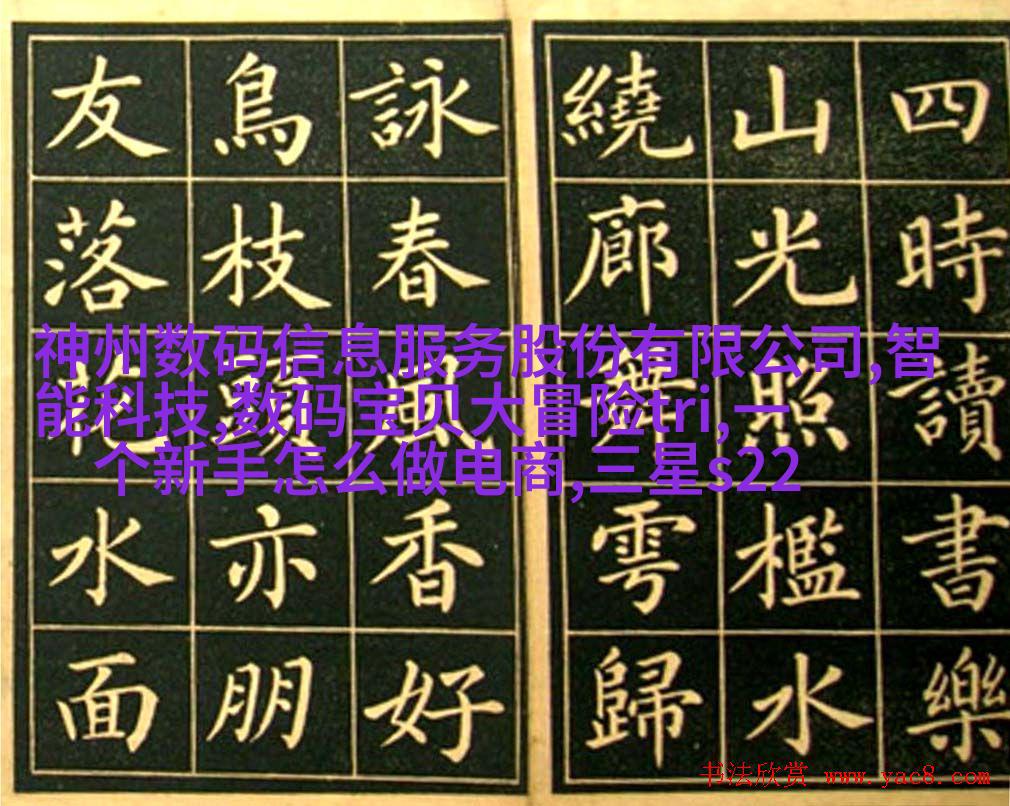 四時讀書樂
山光照檻水
繞廊舞雩歸
詠春風香好
鳥枝頭亦朋
友落花水面
神州数码信息服务股份有限公司,智
能科技,数码宝贝大冒险tri,一
个新手怎么做电商,三星s22
书法欣赏 www.yac8.com